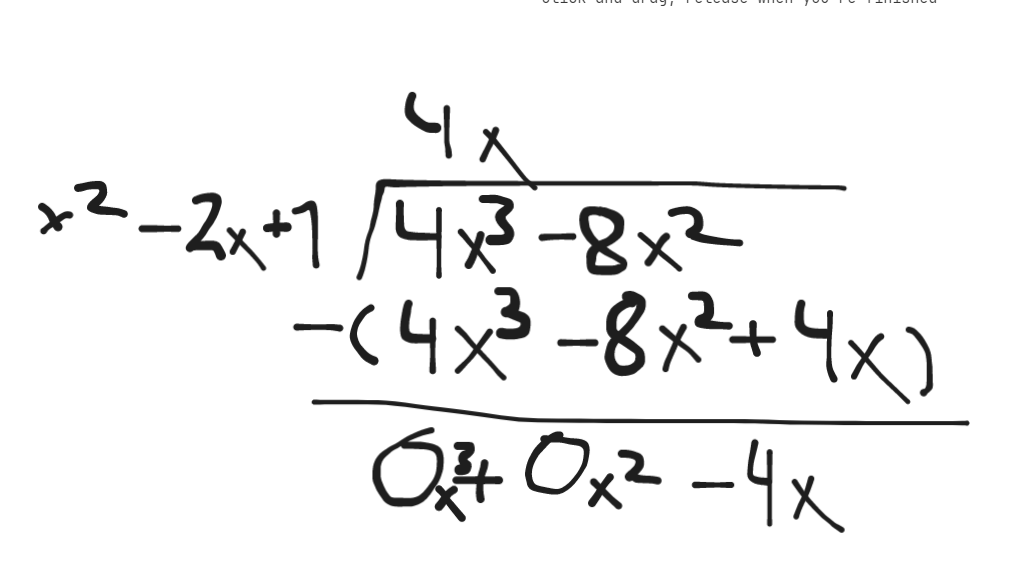 click and drag, release when you're finished
4x
x² - 2x + 1 4x³ - 8x²
-(4x³ - 8x² + 4x)
0x³ + 0x² - 4x